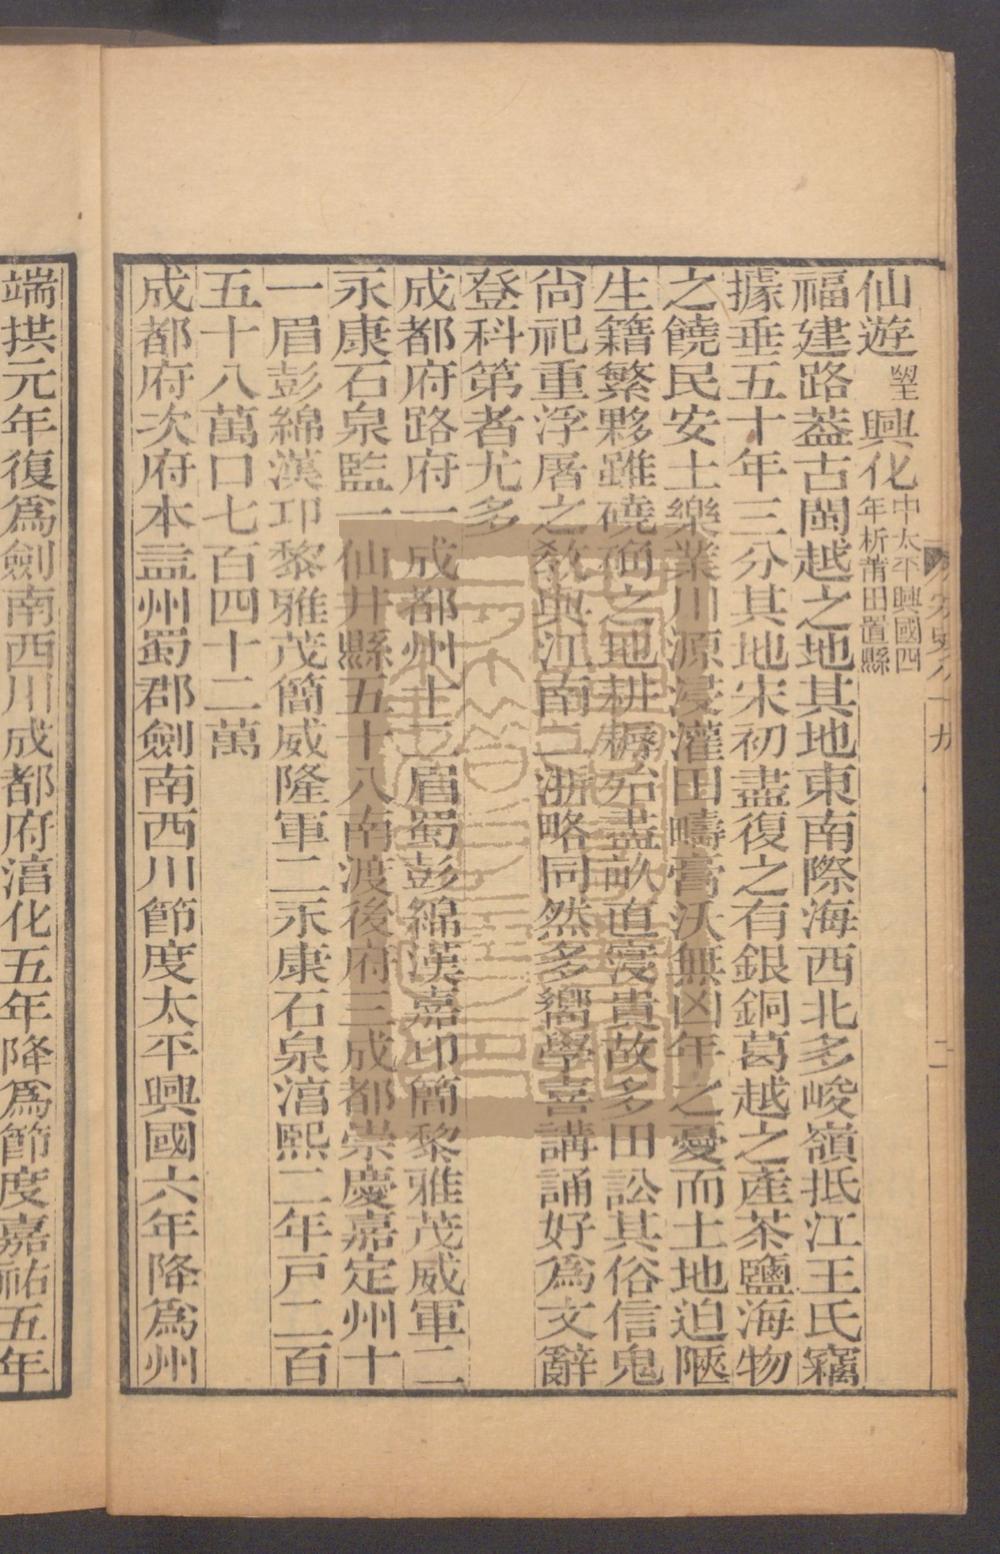 仙遊望興化中太平興國四年析莆田置縣
福建路葢古閩越之地其地東南際海西北多峻嶺抵江王氏竊
據垂五十年三分其地宋初盡復之有銀銅葛越之產茶鹽海物
之饒民安土樂業川源浸灌田疇膏沃無凶年之憂而土地迫陿
生籍繁夥雖磽确之地耕耨殆盡畝直寖貴故多田訟其俗信鬼
尙祀重浮屠之教與江南二浙略同然多嚮學喜講誦好爲文辭
登科第者尤多
成都府路府一成都州十二眉蜀彭綿漢嘉卭簡黎雅茂威軍二
永康石泉監一仙井縣五十八南渡後府三成都崇慶嘉定州十
一眉彭綿漢卭黎雅茂簡威隆軍二永康石泉湻熙二年戸二百
五十八萬口七百四十二萬
成都府次府本益州蜀郡劍南西川節度太平興國六年降爲州
端拱元年復爲劍南西川成都府湻化五年降爲節度嘉祐五年